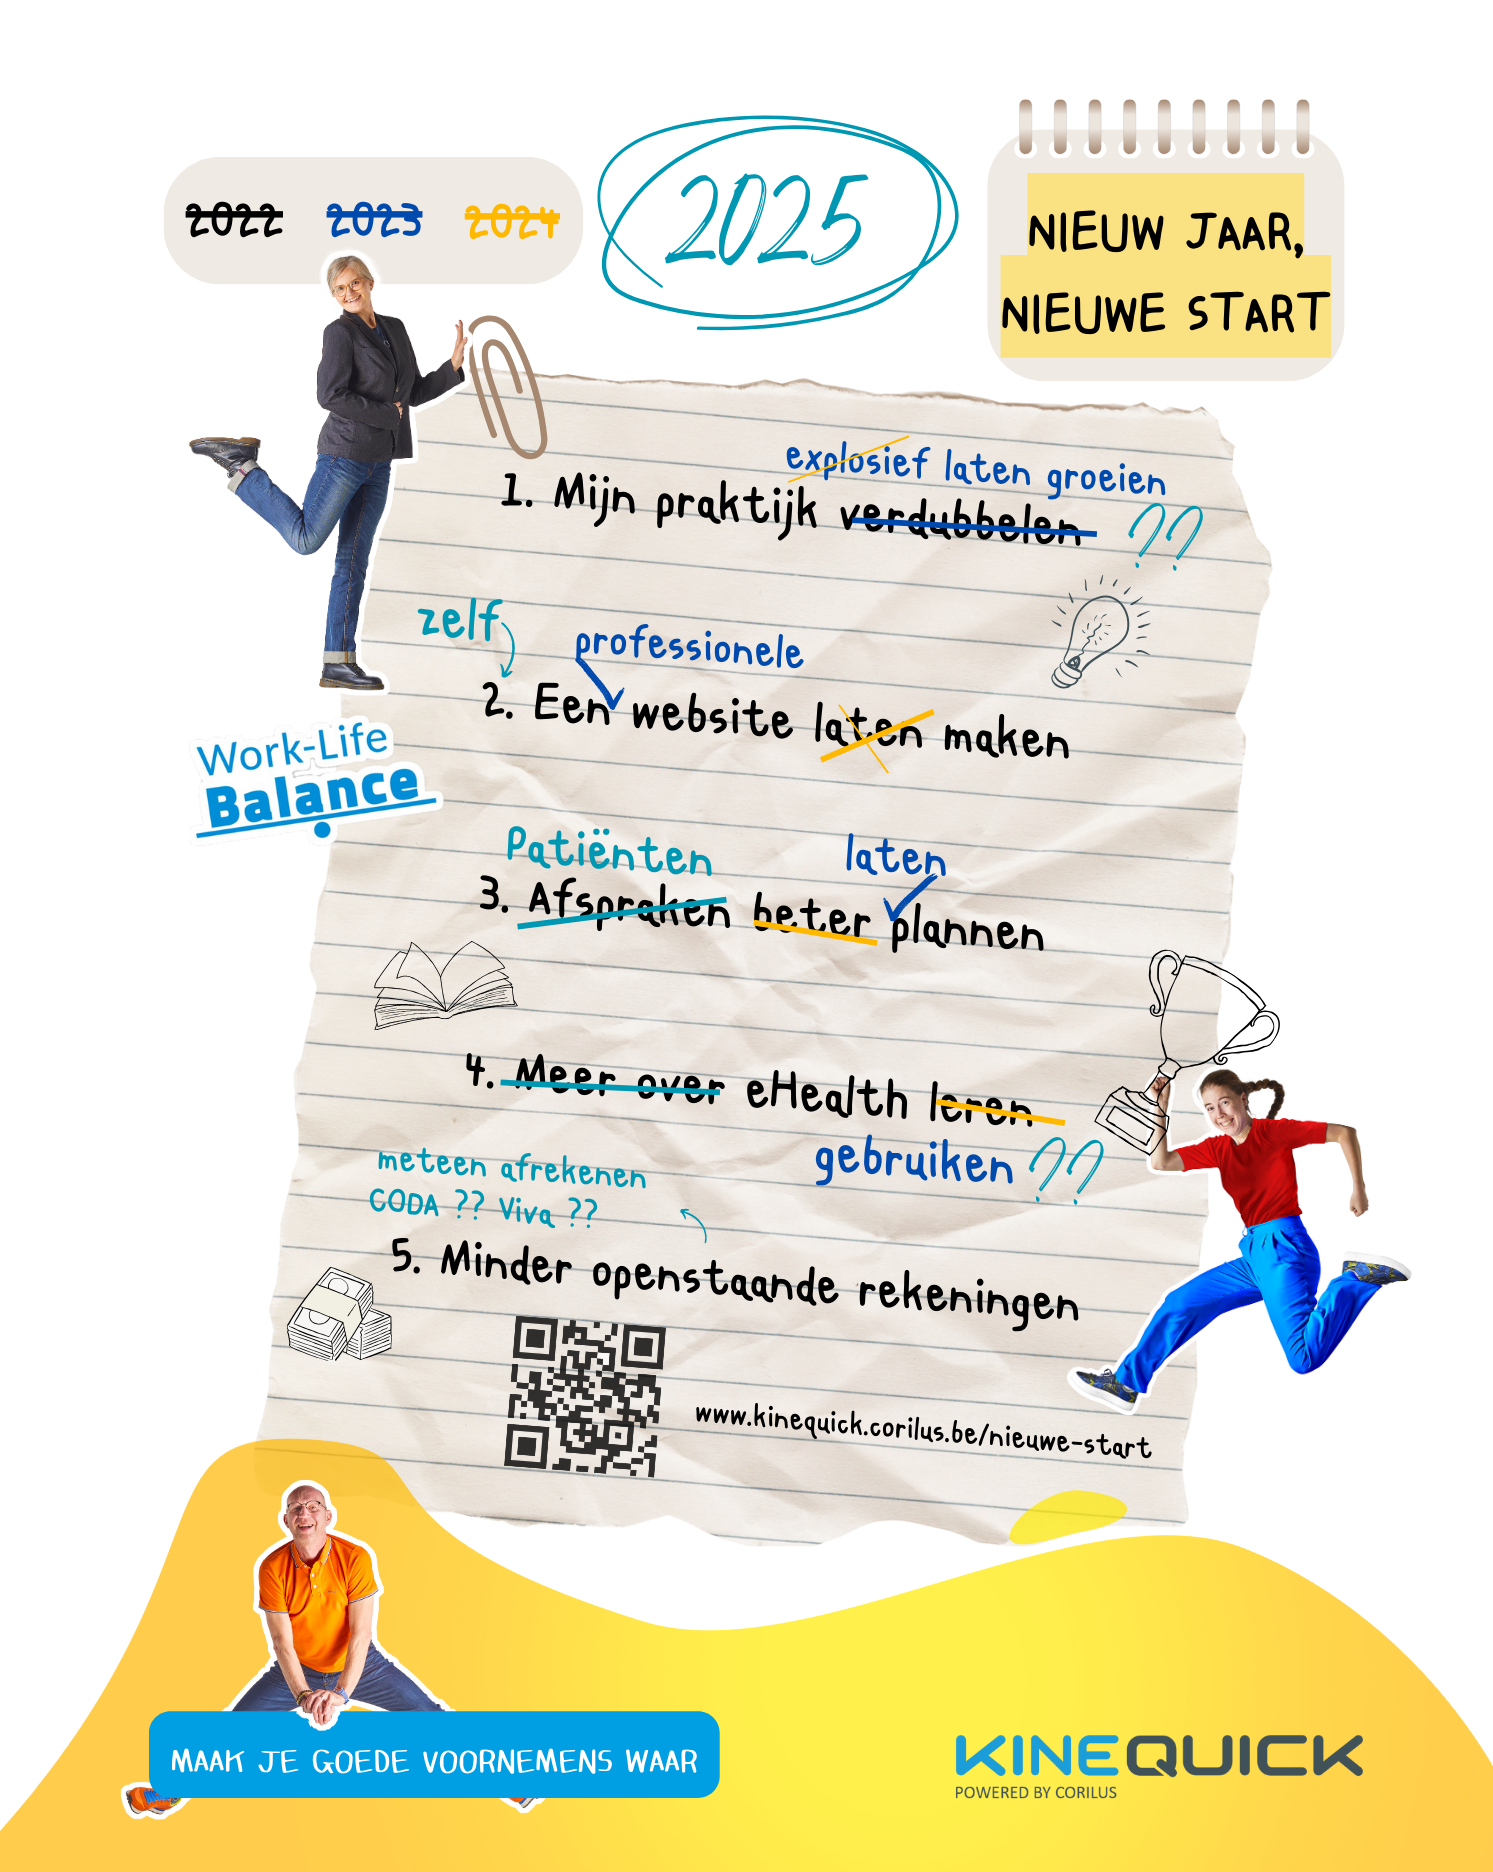 2022 2023 2024
2025
NIEUW JAAR,
NIEUWE START
explosief laten groeien
1. Mijn praktijk verdubbelen ??
zelf
professionele
2. Een website laten maken
Work-Life
Balance
Patiënten laten
3. Afspraken beter plannen
4. Meer over eHealth leren
gebruiken ??
meteen afrekenen
CODA ?? Viva ??
5. Minder openstaande rekeningen
www.kinequick.corilus.be/nieuwe-start
MAAK JE GOEDE VOORNEMENS WAAR
KINEQUICK
POWERED BY CORILUS